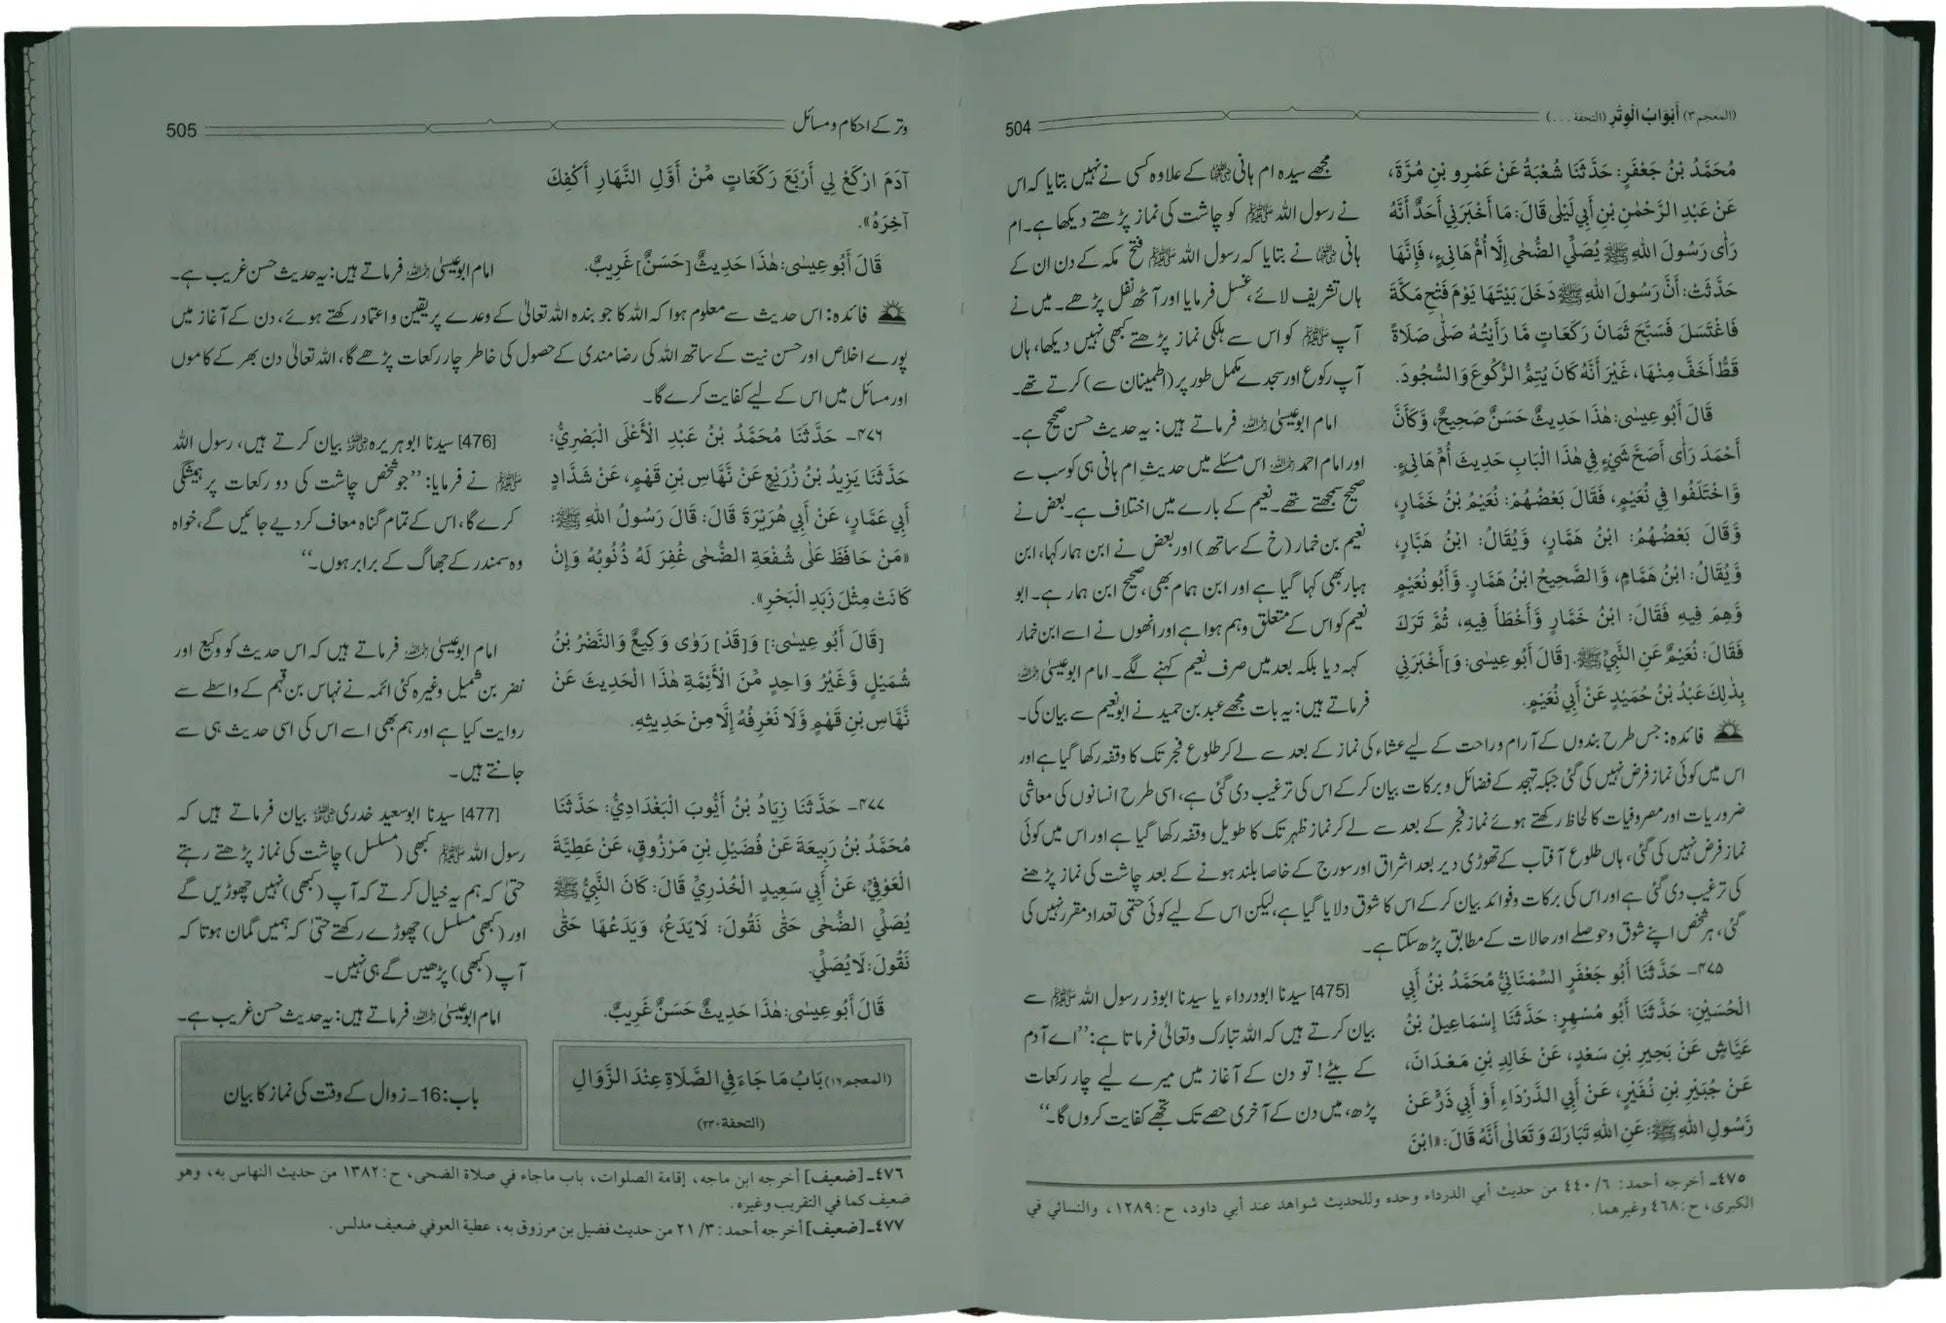 (المعجم ٣) أَبْوَابُ الْوِتْرِ (التحفة . . .)
504
مُحَمَّدُ بْنُ جَعْفَرٍ: حَدَّثَنَا شُعْبَةُ عَنْ عَمْرِو بْنِ مُرَّةَ،
عَنْ عَبْدِ الرَّحْمٰنِ بْنِ أَبِي لَيْلٰى قَالَ: مَا أَخْبَرَنِي أَحَدٌ أَنَّهُ
رَأٰى رَسُولَ اللهِ ﷺ يُصَلِّي الضُّحٰى إِلَّا أُمُّ هَانِيءٍ، فَإِنَّهَا
حَدَّثَتْ: أَنَّ رَسُولَ اللهِ ﷺ دَخَلَ بَيْتَهَا يَوْمَ فَتْحِ مَكَّةَ
فَاغْتَسَلَ فَسَبَّحَ ثَمَانَ رَكَعَاتٍ مَّا رَأَيْتُهُ صَلّٰى صَلَاةً
قَطُّ أَخَفَّ مِنْهَا، غَيْرَ أَنَّهُ كَانَ يُتِمُّ الرُّكُوعَ وَالسُّجُودَ.
قَالَ أَبُو عِيسٰى: هٰذَا حَدِيثٌ حَسَنٌ صَحِيحٌ، وَّكَأَنَّ
أَحْمَدَ رَأٰى أَصَحَّ شَيْءٍ فِي هٰذَا الْبَابِ حَدِيثَ أُمِّ هَانِيءٍ.
وَّاخْتَلَفُوا فِي نُعَيْمٍ، فَقَالَ بَعْضُهُمْ: نُعَيْمُ بْنُ خَمَّارٍ،
وَّقَالَ بَعْضُهُمْ: ابْنُ هَمَّارٍ، وَّيُقَالُ: ابْنُ هَبَّارٍ،
وَّيُقَالُ: ابْنُ هَمَّامٍ، وَّالصَّحِيحُ ابْنُ هَمَّارٍ. وَّأَبُو نُعَيْمٍ
وَّهِمَ فِيهِ فَقَالَ: ابْنُ خَمَّارٍ وَّأَخْطَأَ فِيهِ، ثُمَّ تَرَكَ
فَقَالَ: نُعَيْمٌ عَنِ النَّبِيِّ ﷺ. [قَالَ أَبُو عِيسٰى: وَ]أَخْبَرَنِي
بِذٰلِكَ عَبْدُ بْنُ حُمَيْدٍ عَنْ أَبِي نُعَيْمٍ.
مجھے سیدہ ام ہانی ؓ کے علاوہ کسی نے نہیں بتایا کہ اس
نے رسول اللہ ﷺ کو چاشت کی نماز پڑھتے دیکھا ہے۔ ام
ہانی ؓ نے بتایا کہ رسول اللہ ﷺ فتح مکہ کے دن ان کے
ہاں تشریف لائے، غسل فرمایا اور آٹھ نفل پڑھے۔ میں نے
آپ ﷺ کو اس سے ہلکی نماز پڑھتے کبھی نہیں دیکھا، ہاں
آپ رکوع اور سجدے مکمل طور پر (اطمینان سے) کرتے تھے۔
امام ابوعیسیٰ ؒ فرماتے ہیں: یہ حدیث حسن صحیح ہے۔
اور امام احمد ؒ اس مسئلے میں حدیثِ ام ہانی ہی کو سب سے
صحیح سمجھتے تھے۔ نعیم کے بارے میں اختلاف ہے۔ بعض نے
نعیم بن خمار (خ کے ساتھ) اور بعض نے ابن ہمار کہا، ابن
ہبار بھی کہا گیا ہے اور ابن ہمام بھی، صحیح ابن ہمار ہے۔ ابو
نعیم کو اس کے متعلق وہم ہوا ہے اور انھوں نے اسے ابن خمار
کہہ دیا بلکہ بعد میں صرف نعیم کہنے لگے۔ امام ابوعیسیٰ ؒ
فرماتے ہیں: یہ بات مجھے عبد بن حمید نے ابونعیم سے بیان کی۔
فائدہ: جس طرح بندوں کے آرام و راحت کے لیے عشاء کی نماز کے بعد سے لے کر طلوع فجر تک کا وقفہ رکھا گیا ہے اور
اس میں کوئی نماز فرض نہیں کی گئی جبکہ تہجد کے فضائل و برکات بیان کر کے اس کی ترغیب دی گئی ہے، اسی طرح انسانوں کی معاشی
ضروریات اور مصروفیات کا لحاظ رکھتے ہوئے نماز فجر کے بعد سے لے کر نماز ظہر تک کا طویل وقفہ رکھا گیا ہے اور اس میں کوئی
نماز فرض نہیں کی گئی، ہاں طلوع آفتاب کے تھوڑی دیر بعد اشراق اور سورج کے خاصا بلند ہونے کے بعد چاشت کی نماز پڑھنے
کی ترغیب دی گئی ہے اور اس کی برکات و فوائد بیان کر کے اس کا شوق دلایا گیا ہے، لیکن اس کے لیے کوئی حتمی تعداد مقرر نہیں کی
گئی، ہر شخص اپنے شوق و حوصلے اور حالات کے مطابق پڑھ سکتا ہے۔
٤٧٥- حَدَّثَنَا أَبُو جَعْفَرٍ السِّمْنَانِيُّ مُحَمَّدُ بْنُ أَبِي
الْحُسَيْنِ: حَدَّثَنَا أَبُو مُسْهِرٍ: حَدَّثَنَا إِسْمَاعِيلُ بْنُ
عَيَّاشٍ عَنْ بَحِيرِ بْنِ سَعْدٍ، عَنْ خَالِدِ بْنِ مَعْدَانَ،
عَنْ جُبَيْرِ بْنِ نُفَيْرٍ، عَنْ أَبِي الدَّرْدَاءِ أَوْ أَبِي ذَرٍّ عَنْ
رَّسُولِ اللهِ ﷺ: عَنِ اللهِ تَبَارَكَ وَتَعَالٰى أَنَّهُ قَالَ: «ابْنَ
[475] سیدنا ابودرداء یا سیدنا ابوذر رسول اللہ ﷺ سے
بیان کرتے ہیں کہ اللہ تبارک وتعالیٰ فرماتا ہے: ’’اے آدم
کے بیٹے! تو دن کے آغاز میں میرے لیے چار رکعات
پڑھ، میں دن کے آخری حصے تک تجھے کفایت کروں گا۔‘‘
٤٧٥ـ أخرجه أحمد: ٦/ ٤٤٠ من حديث أبي الدرداء وحده وللحديث شواهد عند أبي داود، ح: ١٢٨٩، والنسائي في
الكبرى، ح: ٤٦٨ وغيرهما.
وتر کے احکام و مسائل
505
آدَمَ ارْكَعْ لِي أَرْبَعَ رَكَعَاتٍ مِّنْ أَوَّلِ النَّهَارِ أَكْفِكَ
آخِرَهُ».
قَالَ أَبُو عِيسٰى: هٰذَا حَدِيثٌ [حَسَنٌ] غَرِيبٌ.
امام ابوعیسیٰ ؒ فرماتے ہیں: یہ حدیث حسن غریب ہے۔
فائدہ: اس حدیث سے معلوم ہوا کہ اللہ کا جو بندہ اللہ تعالیٰ کے وعدے پر یقین و اعتماد رکھتے ہوئے، دن کے آغاز میں
پورے اخلاص اور حسن نیت کے ساتھ اللہ کی رضا مندی کے حصول کی خاطر چار رکعات پڑھے گا، اللہ تعالیٰ دن بھر کے کاموں
اور مسائل میں اس کے لیے کفایت کرے گا۔
٤٧٦- حَدَّثَنَا مُحَمَّدُ بْنُ عَبْدِ الْأَعْلَى الْبَصْرِيُّ:
حَدَّثَنَا يَزِيدُ بْنُ زُرَيْعٍ عَنْ نَّهَّاسِ بْنِ قَهْمٍ، عَنْ شَدَّادٍ
أَبِي عَمَّارٍ، عَنْ أَبِي هُرَيْرَةَ قَالَ: قَالَ رَسُولُ اللهِ ﷺ:
«مَنْ حَافَظَ عَلٰى شُفْعَةِ الضُّحٰى غُفِرَ لَهُ ذُنُوبُهُ وَإِنْ
كَانَتْ مِثْلَ زَبَدِ الْبَحْرِ».
[476] سیدنا ابوہریرہ ؓ بیان کرتے ہیں، رسول اللہ
ﷺ نے فرمایا: ’’جو شخص چاشت کی دو رکعات پر ہمیشگی
کرے گا، اس کے تمام گناہ معاف کر دیے جائیں گے، خواہ
وہ سمندر کے جھاگ کے برابر ہوں۔‘‘
[قَالَ أَبُو عِيسٰى:] وَ[قَدْ] رَوٰى وَكِيعٌ وَالنَّضْرُ بْنُ
شُمَيْلٍ وَّغَيْرُ وَاحِدٍ مِّنَ الْأَئِمَّةِ هٰذَا الْحَدِيثَ عَنْ
نَّهَّاسِ بْنِ قَهْمٍ وَّلَا نَعْرِفُهُ إِلَّا مِنْ حَدِيثِهِ.
امام ابوعیسیٰ ؒ فرماتے ہیں کہ اس حدیث کو وکیع اور
نضر بن شمیل وغیرہ کئی ائمہ نے نہاس بن قہم کے واسطے سے
روایت کیا ہے اور ہم بھی اسے اس کی اسی حدیث ہی سے
جانتے ہیں۔
٤٧٧- حَدَّثَنَا زِيَادُ بْنُ أَيُّوبَ الْبَغْدَادِيُّ: حَدَّثَنَا
مُحَمَّدُ بْنُ رَبِيعَةَ عَنْ فُضَيْلِ بْنِ مَرْزُوقٍ، عَنْ عَطِيَّةَ
الْعَوْفِيِّ، عَنْ أَبِي سَعِيدٍ الْخُدْرِيِّ قَالَ: كَانَ النَّبِيُّ ﷺ
يُصَلِّي الضُّحٰى حَتّٰى نَقُولَ: لَا يَدَعُ، وَيَدَعُهَا حَتّٰى
نَقُولَ: لَا يُصَلِّي.
[477] سیدنا ابوسعید خدری ؓ بیان فرماتے ہیں کہ
رسول اللہ ﷺ کبھی (مسلسل) چاشت کی نماز پڑھتے رہتے
حتیٰ کہ ہم یہ خیال کرتے کہ آپ (کبھی) نہیں چھوڑیں گے
اور (کبھی مسلسل) چھوڑے رکھتے حتیٰ کہ ہمیں گمان ہوتا کہ
آپ (کبھی) پڑھیں گے ہی نہیں۔
قَالَ أَبُو عِيسٰى: هٰذَا حَدِيثٌ حَسَنٌ غَرِيبٌ.
امام ابوعیسیٰ ؒ فرماتے ہیں: یہ حدیث حسن غریب ہے۔
(المعجم ١٦) بَابُ مَا جَاءَ فِي الصَّلَاةِ عِنْدَ الزَّوَالِ
(التحفة ٢٣٠)
باب: 16۔ زوال کے وقت کی نماز کا بیان
٤٧٦ـ [ضعيف] أخرجه ابن ماجه، إقامة الصلوات، باب ماجاء في صلاة الضحى، ح: ١٣٨٢ من حديث النهاس به، وهو
ضعيف كما في التقريب وغيره.
٤٧٧ـ [ضعيف] أخرجه أحمد: ٣/ ٢١ من حديث فضيل بن مرزوق به، عطية العوفي ضعيف مدلس.